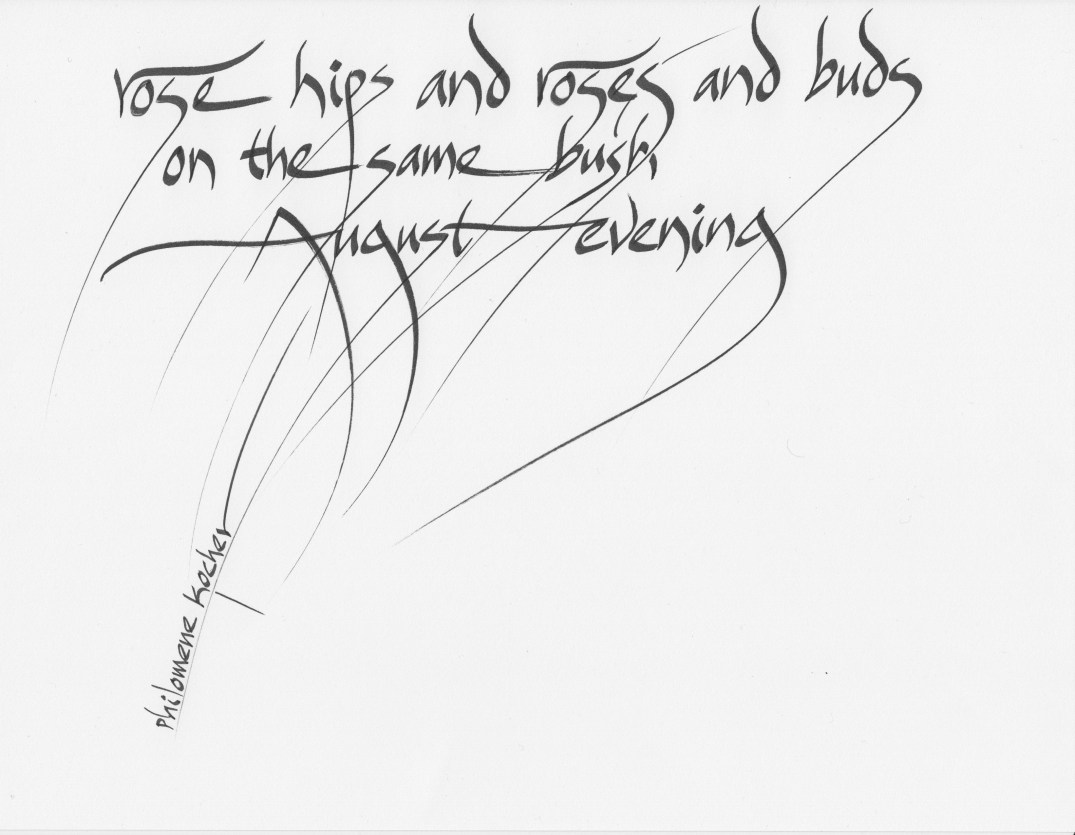 rose hips and roses and buds
on the same bush
August evening
philomene kocher